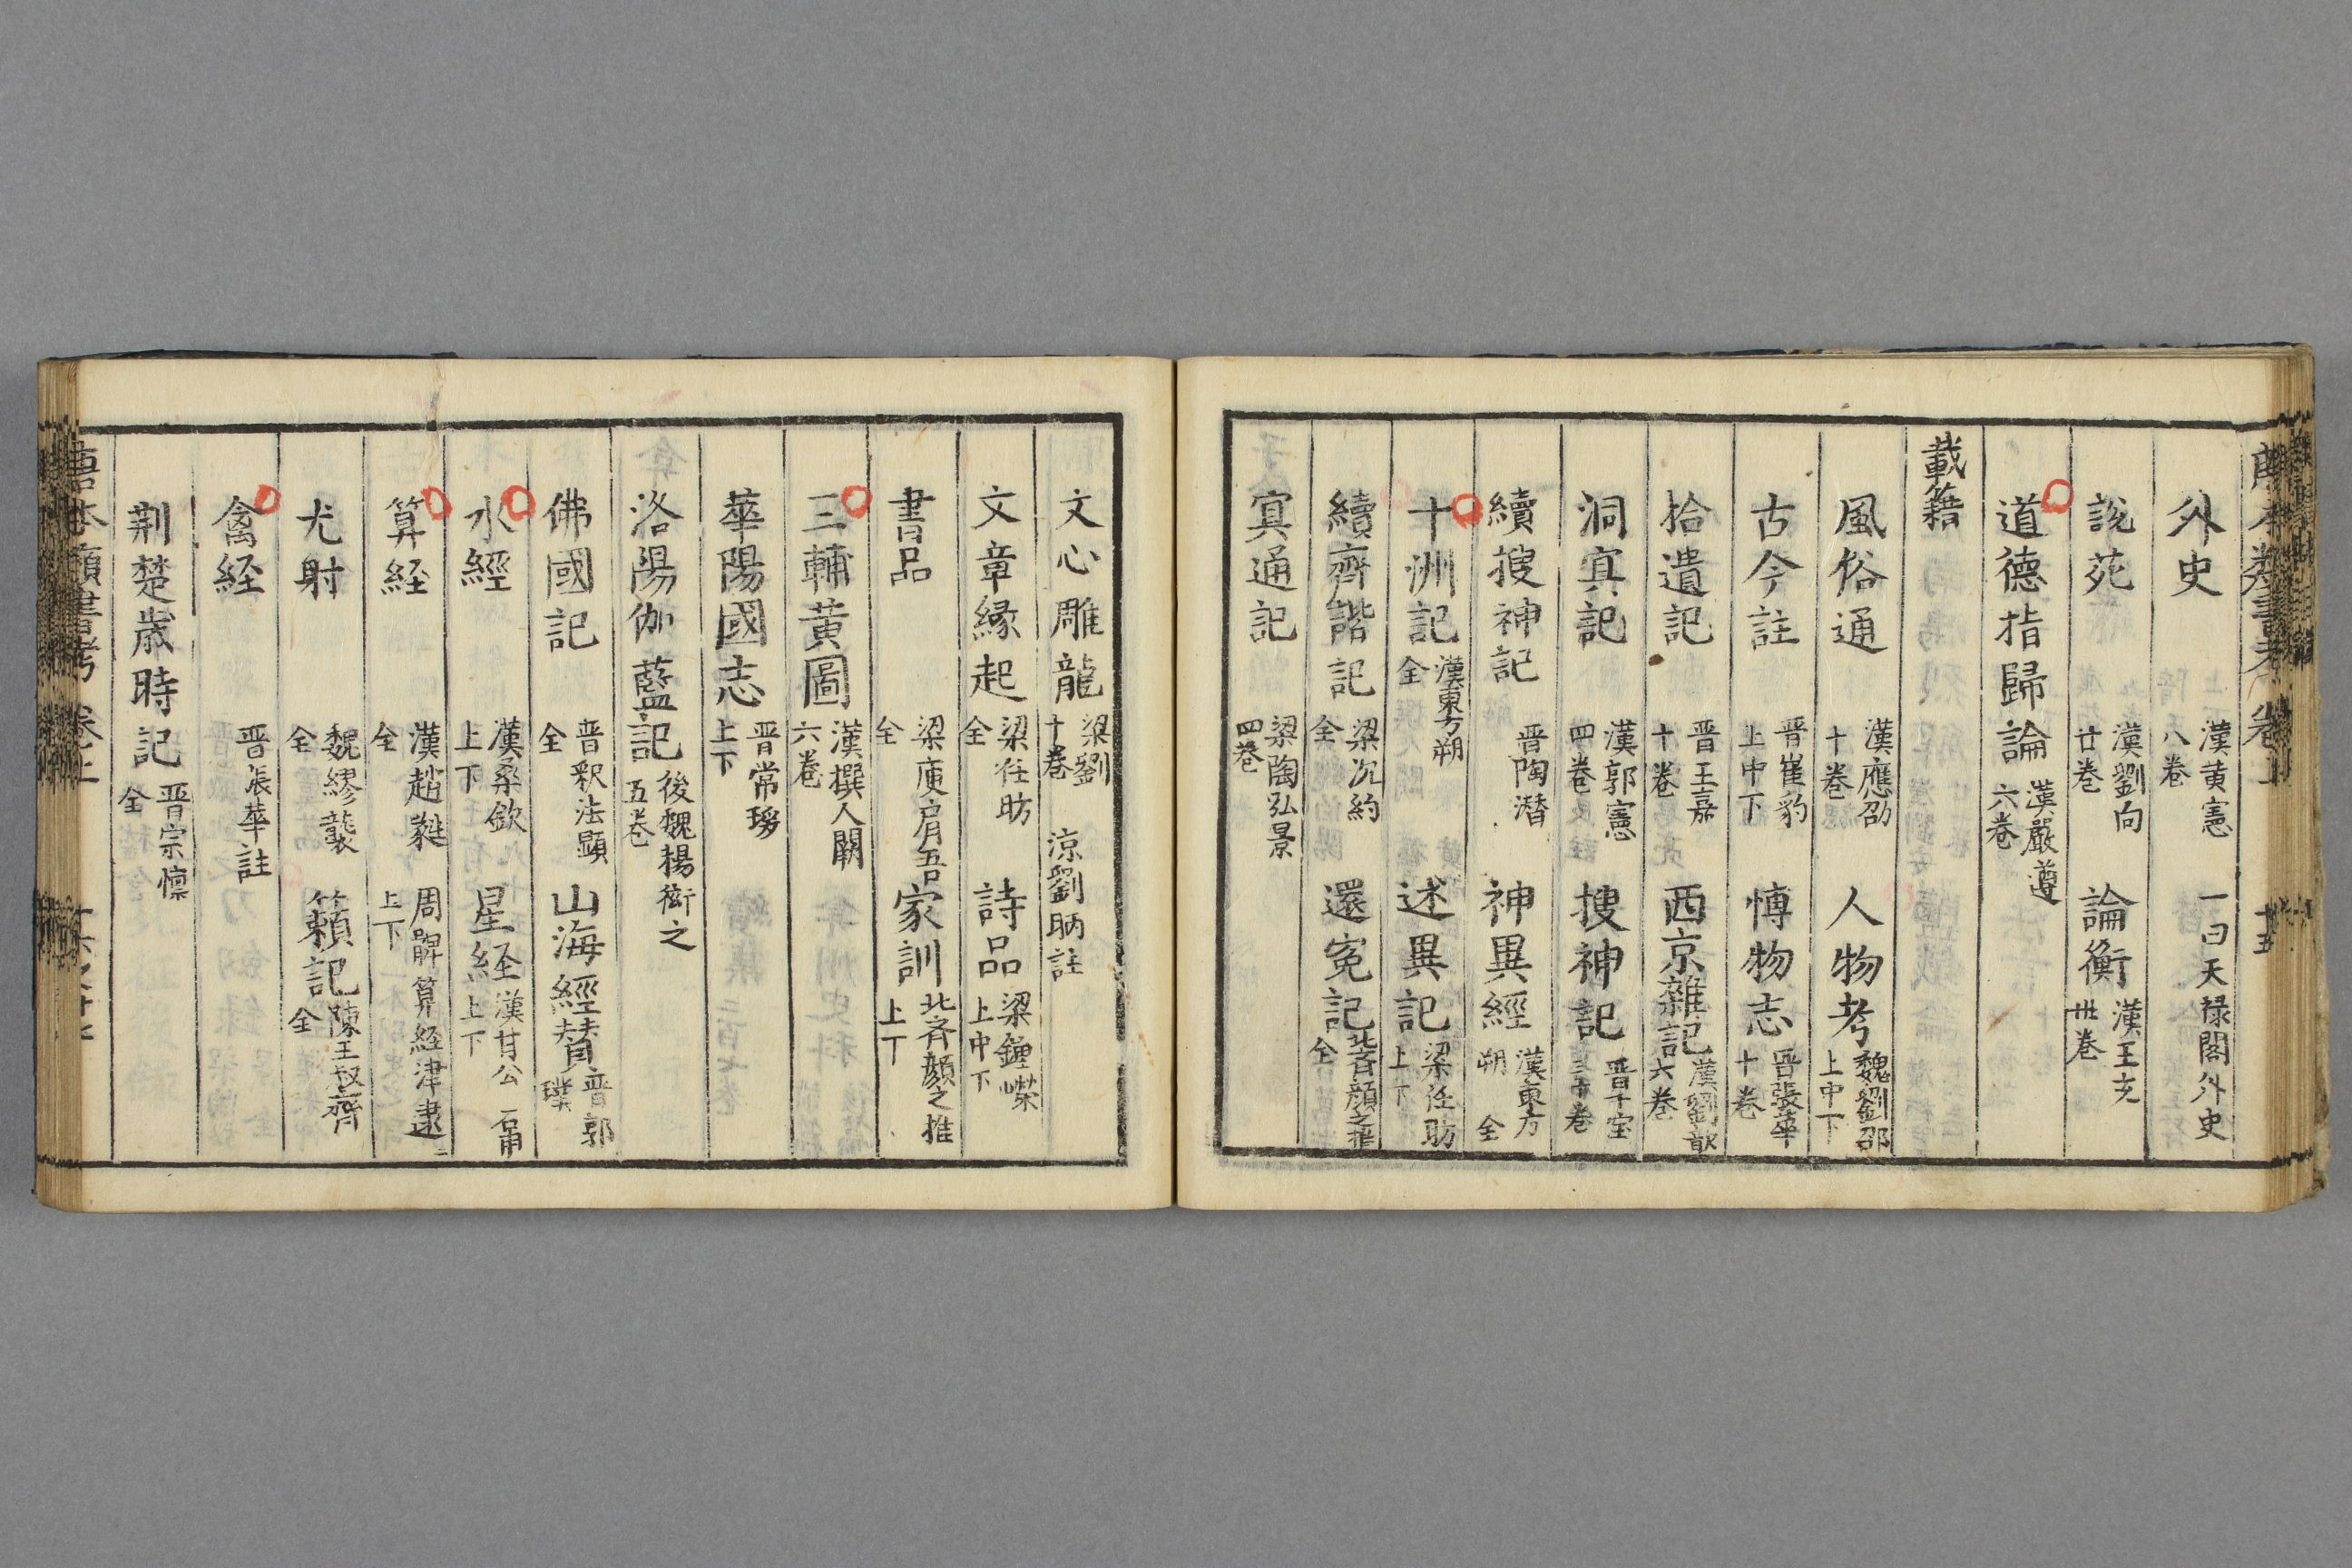 外史 漢黄憲 八巻 一曰天禄閣外史
説苑 漢劉向 廿巻 論衡 漢王充 卅巻
道德指歸論 漢嚴遵 六巻
載籍
風俗通 漢應劭 十巻 人物考 魏劉邵 上中下
古今註 晋崔豹 上中下 愽物志 晋張華 十巻
拾遺記 晋王嘉 十巻 西京雜記 漢劉歆 六巻
洞㝠記 漢郭憲 四巻 搜神記 晋干宝 三十巻
續搜神記 晋陶潜 神異經 漢東方朔 全
十洲記 漢東方朔 全 述異記 梁任昉 上下
續齊諧記 梁沉約 全 還寃記 北斉顔之推 全
㝠通記 梁陶弘景 四巻
文心雕龍 梁劉 十巻 涼劉昞註
文章縁起 梁任昉 全 詩品 梁鍾嶸 上中下
書品 梁庾肩吾 全 家訓 北斉顔之推 上下
三輔黄圖 漢撰人闕 六巻
華陽國志 晋常璩 上下
洛陽伽藍記 後魏楊衒之 五巻
佛國記 晋釈法顕 全 山海經賛 晋郭璞
水經 漢桑欽 上下 星経 漢甘公 石申 上下
算経 漢趙㲋 全 周髀算経津逮 上下
尤射 魏繆襲 全 籟記 陳王叔齊 全
禽経 晋張華註
荆楚歳時記 晋宗懍 全
唐本類書考 巻上